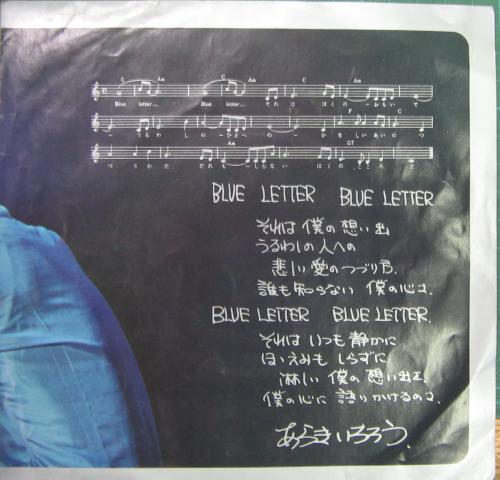 C Am C Am C Am
Blue letter… Blue letter… それは ぼくの おもいで
F C
うるわ しの ひとへ の かなしい あいの つ
Am G7
づりかた だれも しらない ぼくの こころ さ
BLUE LETTER BLUE LETTER
それは 僕の 想い出
うるわしの人への
悲しい 愛のつづり方.
誰も知らない 僕の心さ.
BLUE LETTER BLUE LETTER.
それは いつも 静かに
ほゝえみも しらずに
淋しい 僕の 想い出を
僕の心に 語りかけるのさ.
あらきいちろう.